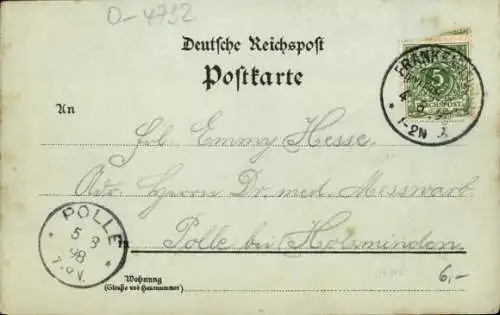 O-4732
Deutsche Reichspost
Postkarte
FRANKEN
5
REICHSPOST
* 1-2N
An
Frl. Emmy Hesse.
Adr. Herrn Dr. med. Messwarb
Polle bei Holzminden.
POLLE
5 8
98
7-8V.
Wohnung
(Straße und Hausnummer)
6,-